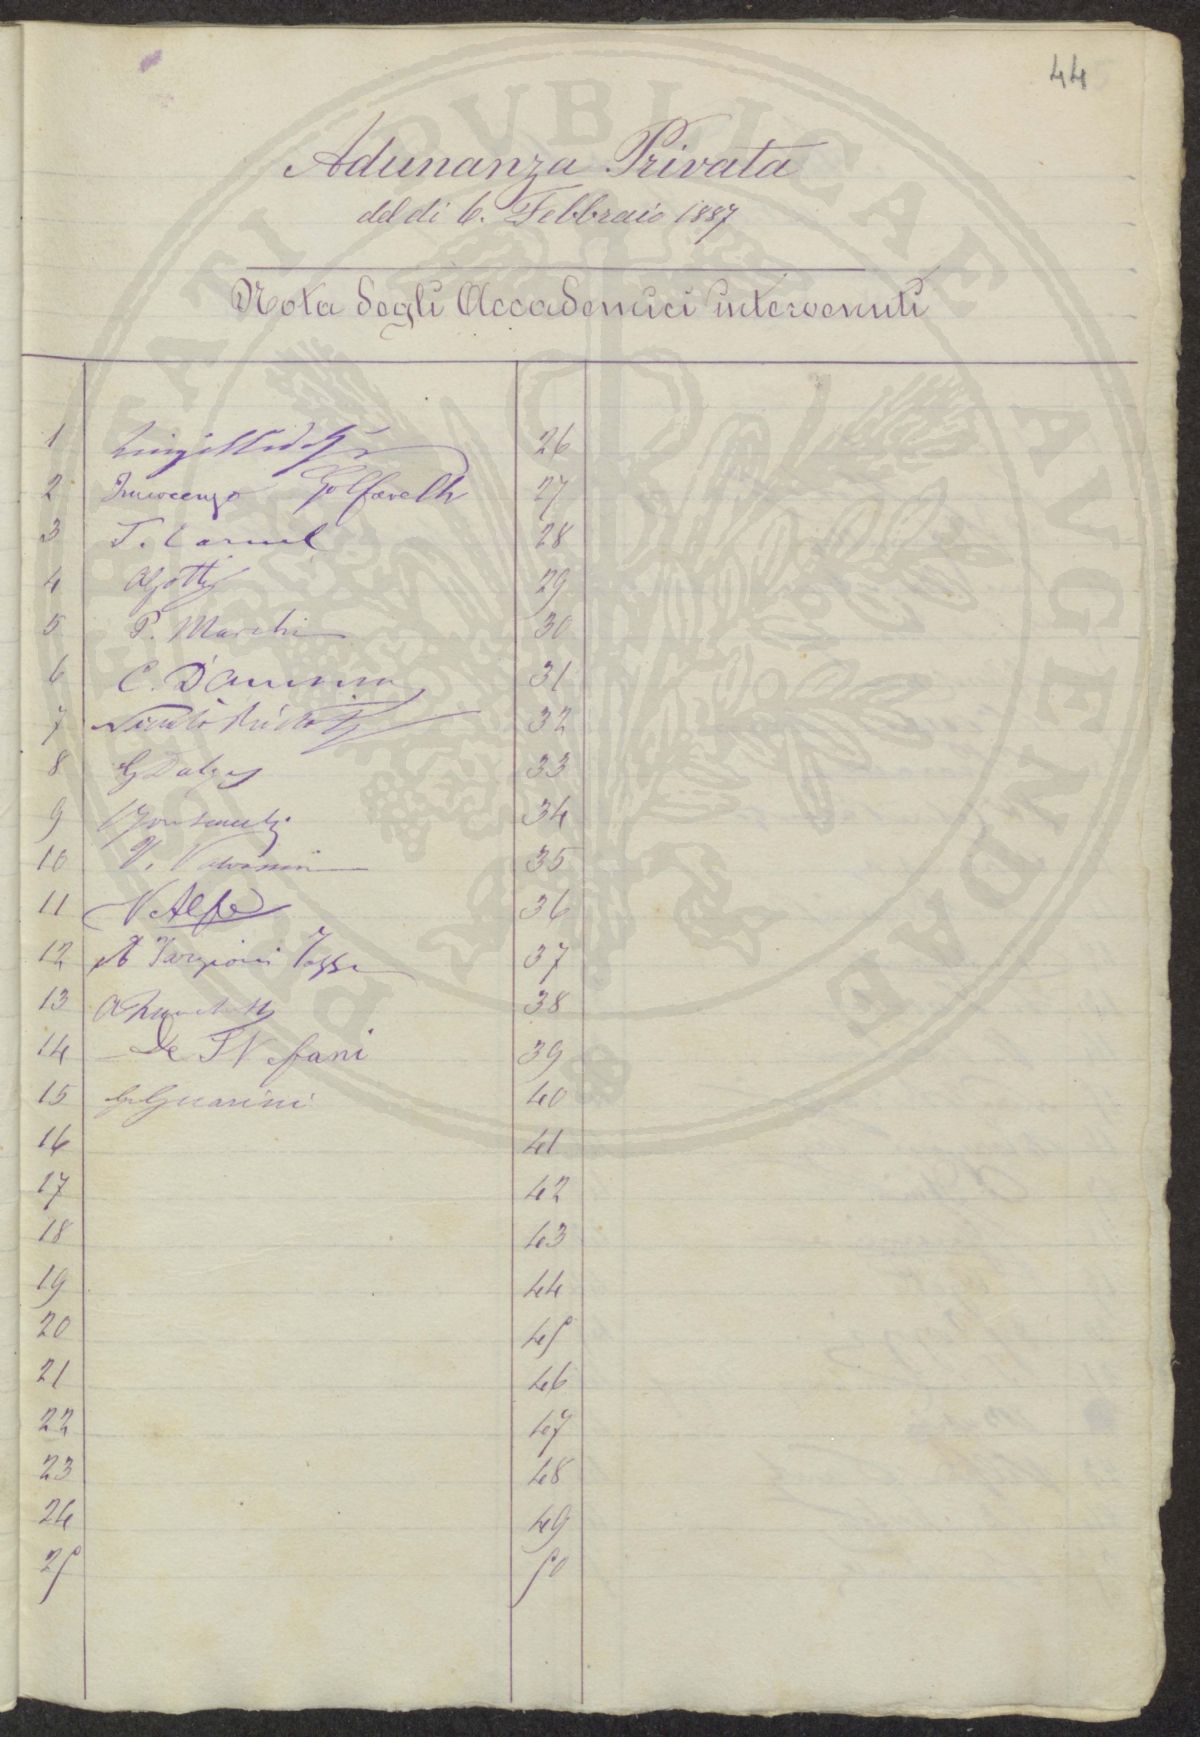 44
Adunanza Privata
del dì 6. Febbraio 1887
Nota degli Accademici intervenuti
1
2 Innocenzo Golfarelli
3 T. Caruel
4
5 P. Marchi
6 C. D'Ancona
7
8
9
10 V. Valvassori
11 V Alpe
12 A Targioni Tozz
13
14 De Stefani
15 G Guarini
16
17
18
19
20
21
22
23
24
25
26
27
28
29
30
31
32
33
34
35
36
37
38
39
40
41
42
43
44
45
46
47
48
49
50
PROSPERITATI PUBLICAE AVGENDAE